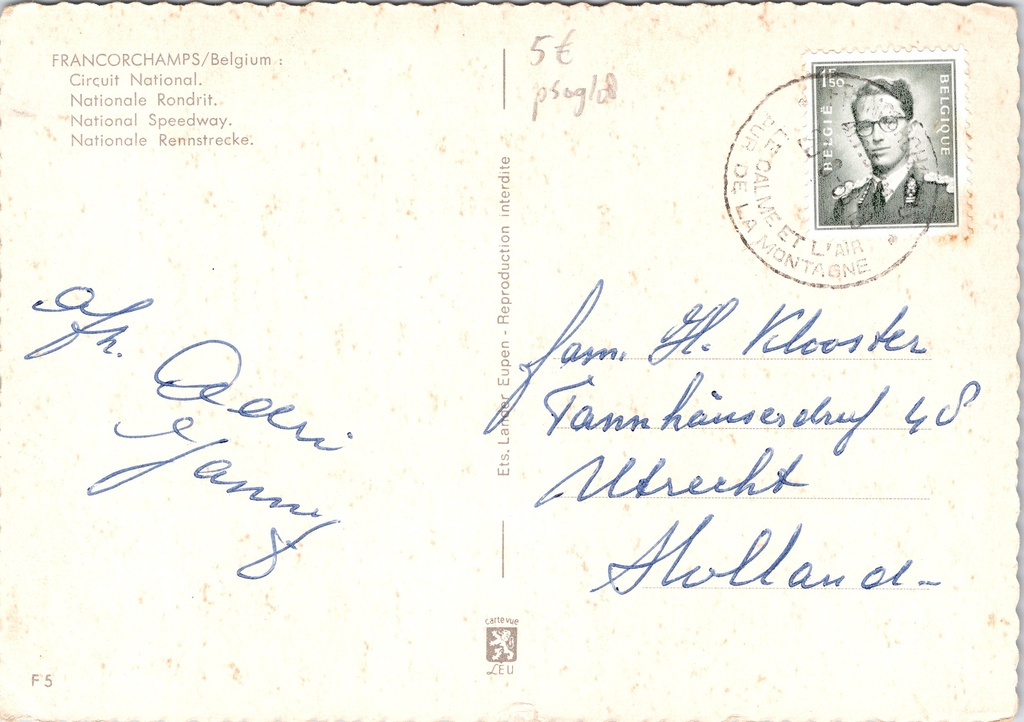 FRANCORCHAMPS/Belgium :
Circuit National.
Nationale Rondrit.
National Speedway.
Nationale Rennstrecke.
5€
1F50
BELGIË
BELGIQUE
LE CALME ET L'AIR
PUR DE LA MONTAGNE
afz.
Adri
Janny
Ets. Lander Eupen - Reproduction interdite
fam. H. Klooster
Tannhäuserdreef 48
Utrecht
Holland-
carte vue
LEU
F 5